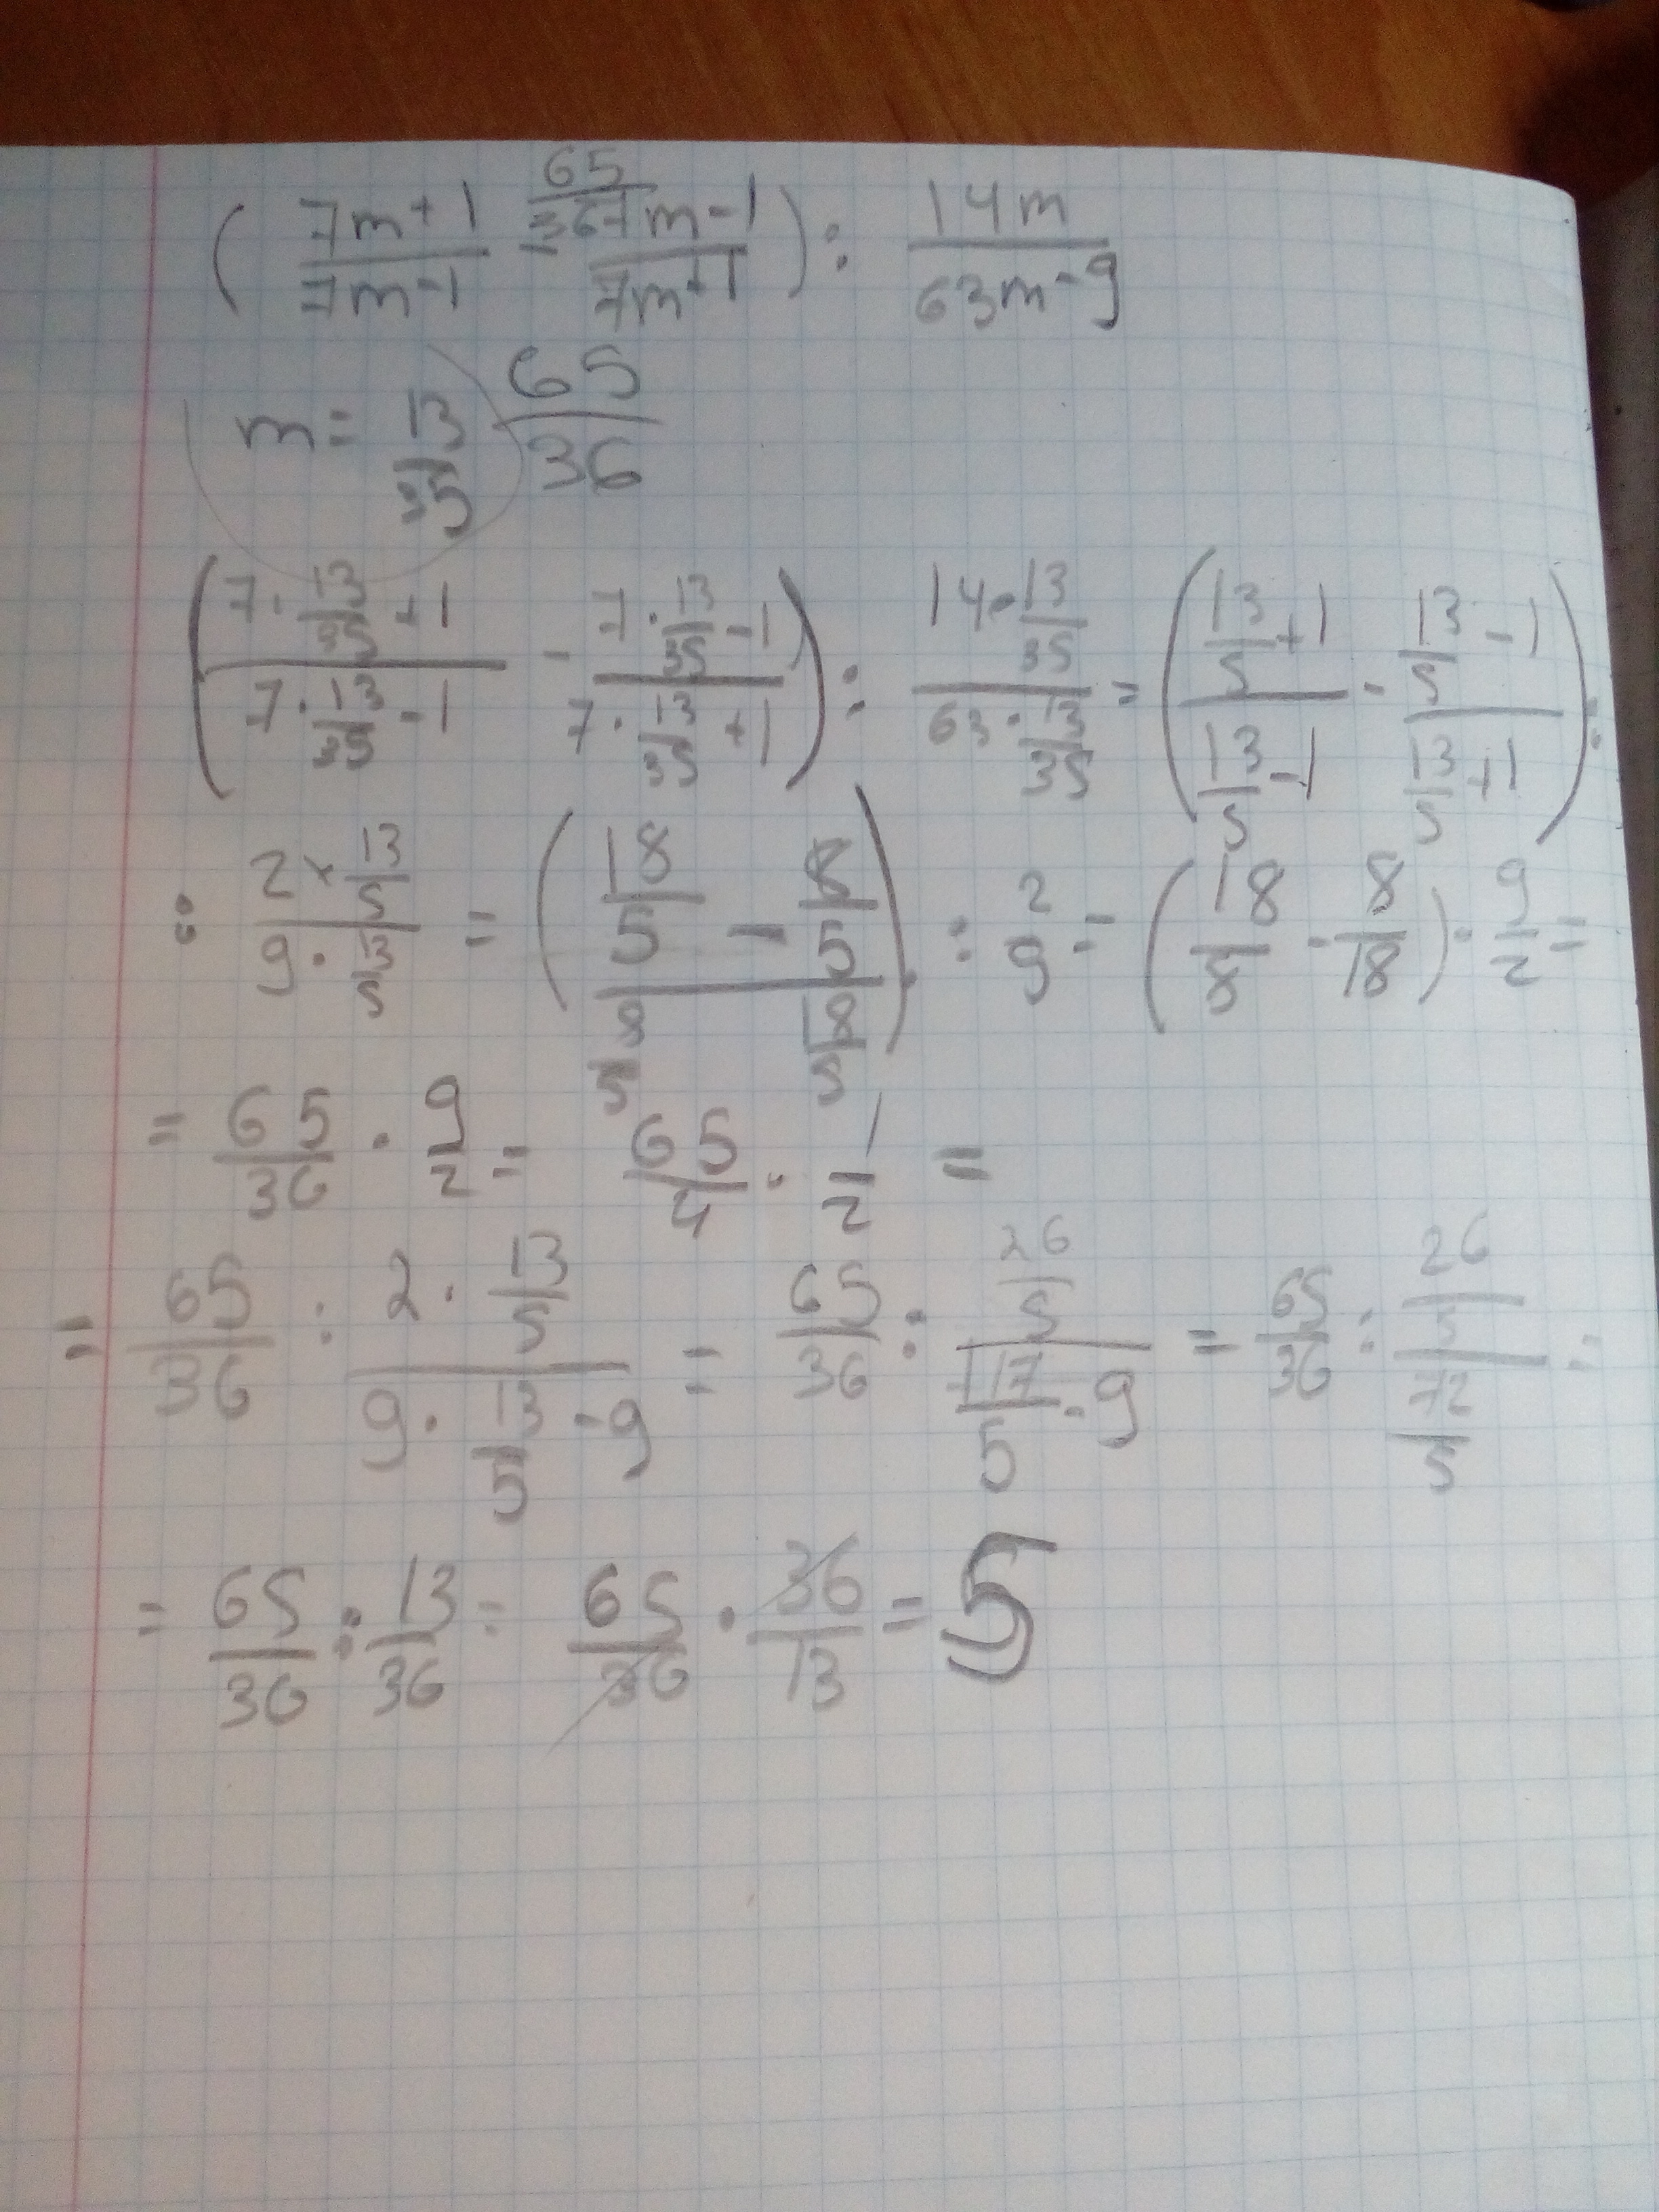 65/36
((7m+1)/(7m-1) - (7m-1)/(7m+1)) : 14m/(63m-9)
m = 13/35 65/36
((7·13/35+1)/(7·13/35-1) - (7·13/35-1)/(7·13/35+1)) : (14·13/35)/(63·13/35) = ((13/5+1)/(13/5-1) - (13/5-1)/(13/5+1)) :
: (2×13/5)/(9·13/5) = ((18/5)/(8/5) - (8/5)/(18/5)) : 2/9 = (18/8 - 8/18) · 9/2 =
= 65/36 · 9/2 = 65/4 · 1/2 =
= 65/36 : (2·13/5)/(9·13/5-9) = 65/36 : (26/5)/(117/5-9) = 65/36 : (26/5)/(72/5) =
= 65/36 : 13/36 = 65/36 · 36/13 = 5